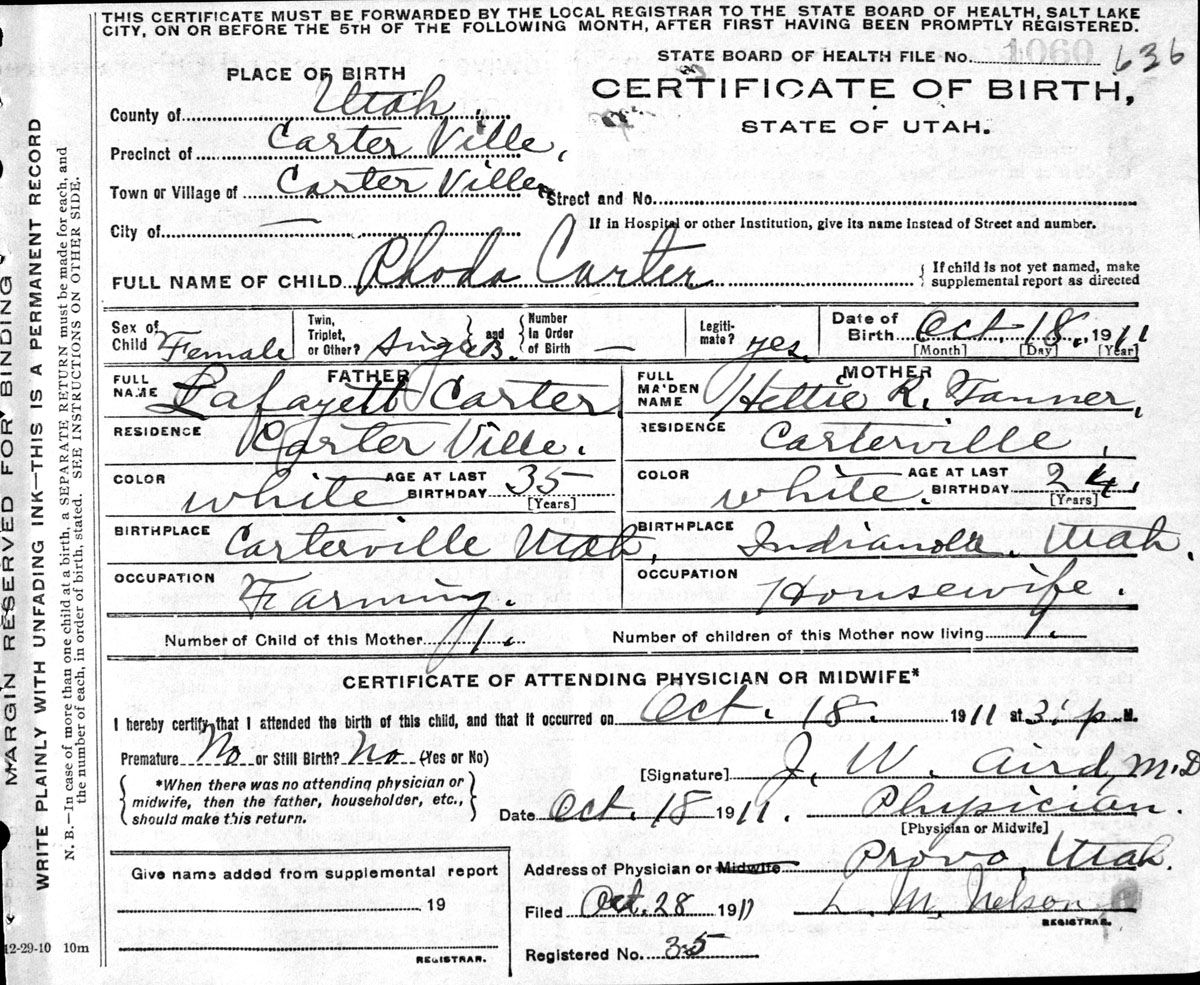 THIS CERTIFICATE MUST BE FORWARDED BY THE LOCAL REGISTRAR TO THE STATE BOARD OF HEALTH, SALT LAKE
CITY, ON OR BEFORE THE 5TH OF THE FOLLOWING MONTH, AFTER FIRST HAVING BEEN PROMPTLY REGISTERED.
STATE BOARD OF HEALTH FILE No. 1060 636
PLACE OF BIRTH
CERTIFICATE OF BIRTH,
STATE OF UTAH.
County of Utah.
Precinct of Carter Ville,
Town or Village of Carter Ville Street and No.
City of — If in Hospital or other Institution, give its name instead of Street and number.
FULL NAME OF CHILD Rhoda Carter { If child is not yet named, make
supplemental report as directed
Sex of Child Female Twin, Triplet, or Other? and Number in Order of Birth — Legiti-mate? yes. Date of Birth Oct. 18., 1911
[Month] [Day] [Year]
FATHER MOTHER
FULL NAME Lafayett Carter. FULL MAIDEN NAME Hettie R. Tanner,
RESIDENCE Carter Ville. RESIDENCE Carterville.
COLOR white AGE AT LAST BIRTHDAY 35 [Years] COLOR white. AGE AT LAST BIRTHDAY 24. [Years]
BIRTHPLACE Carterville Utah, BIRTHPLACE Indianola. Utah.
OCCUPATION Farming. OCCUPATION Housewife.
Number of Child of this Mother 1. Number of children of this Mother now living 1.
CERTIFICATE OF ATTENDING PHYSICIAN OR MIDWIFE*
I hereby certify that I attended the birth of this child, and that it occurred on Oct. 18. 1911 at 3: p M.
Premature No or Still Birth? No (Yes or No)
[Signature] J. W. Aird, M.D
*When there was no attending physician or
midwife, then the father, householder, etc.,
should make this return.
Date Oct. 18 1911. Physician.
[Physician or Midwife]
Address of Physician or Midwife Provo, Utah.
Give name added from supplemental report
19
REGISTRAR.
Filed Oct. 28 1911 L. M. Nelson
REGISTRAR.
Registered No. 35
12-29-10 10m
MARGIN RESERVED FOR BINDING
WRITE PLAINLY WITH UNFADING INK—THIS IS A PERMANENT RECORD
N. B.—In case of more than one child at a birth, a SEPARATE RETURN must be made for each, and
the number of each, in order of birth, stated. SEE INSTRUCTIONS ON OTHER SIDE.